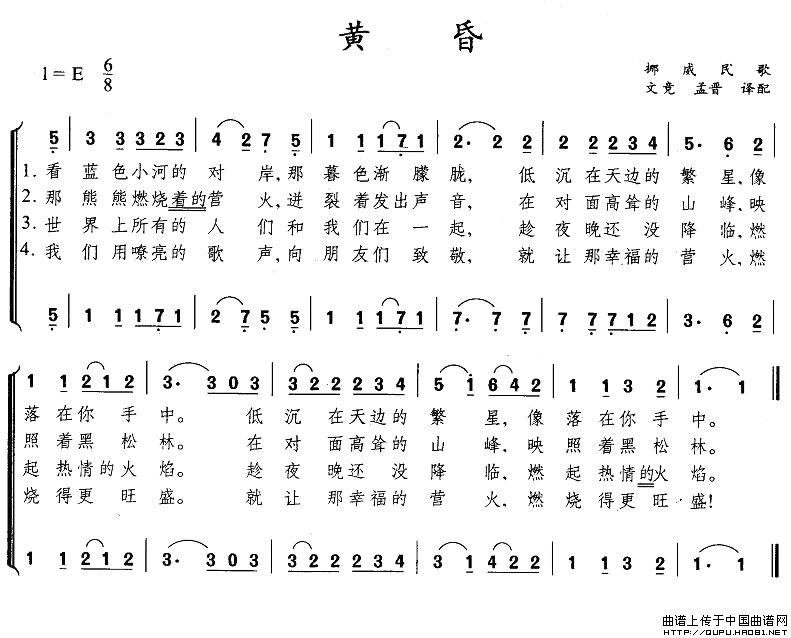 黄昏
1=E 6/8
挪威民歌
文竞 孟晋 译配
5 | 3 3 3 2 3 | 4 2 7 5 | 1 1 1 7 1 | 2· 2 2 | 2 2 2 3 4 | 5· 6 2
1. 看 蓝色小河的对 岸,那暮色渐朦胧, 低沉在天边的繁星,像
2. 那熊熊燃烧着的营 火,迸裂着发出声音, 在对面高耸的山峰,映
3. 世界上所有的人 们和我们在一起, 趁夜晚还没降临,燃
4. 我们用嘹亮的歌 声,向朋友们致敬, 就让那幸福的营火,燃
5 | 1 1 1 7 1 | 2 7 5 5 | 1 1 1 7 1 | 7· 7 7 | 7 7 7 1 2 | 3· 6 2
1 1 2 1 2 | 3· 3 0 3 | 3 2 2 2 3 4 | 5 1 6 4 2 | 1 1 3 2 | 1· 1
落在你手中。 低沉在天边的繁星,像落在你手中。
照着黑松林。 在对面高耸的山峰,映照着黑松林。
起热情的火焰。 趁夜晚还没降临,燃起热情的火焰。
烧得更旺盛。 就让那幸福的营火,燃烧得更旺盛!
1 1 2 1 2 | 3· 3 0 3 | 3 2 2 2 3 4 | 3 1 4 2 2 | 1 1 3 2 | 1· 1
曲谱上传于中国曲谱网
HTTP://QUPU.HAO81.NET